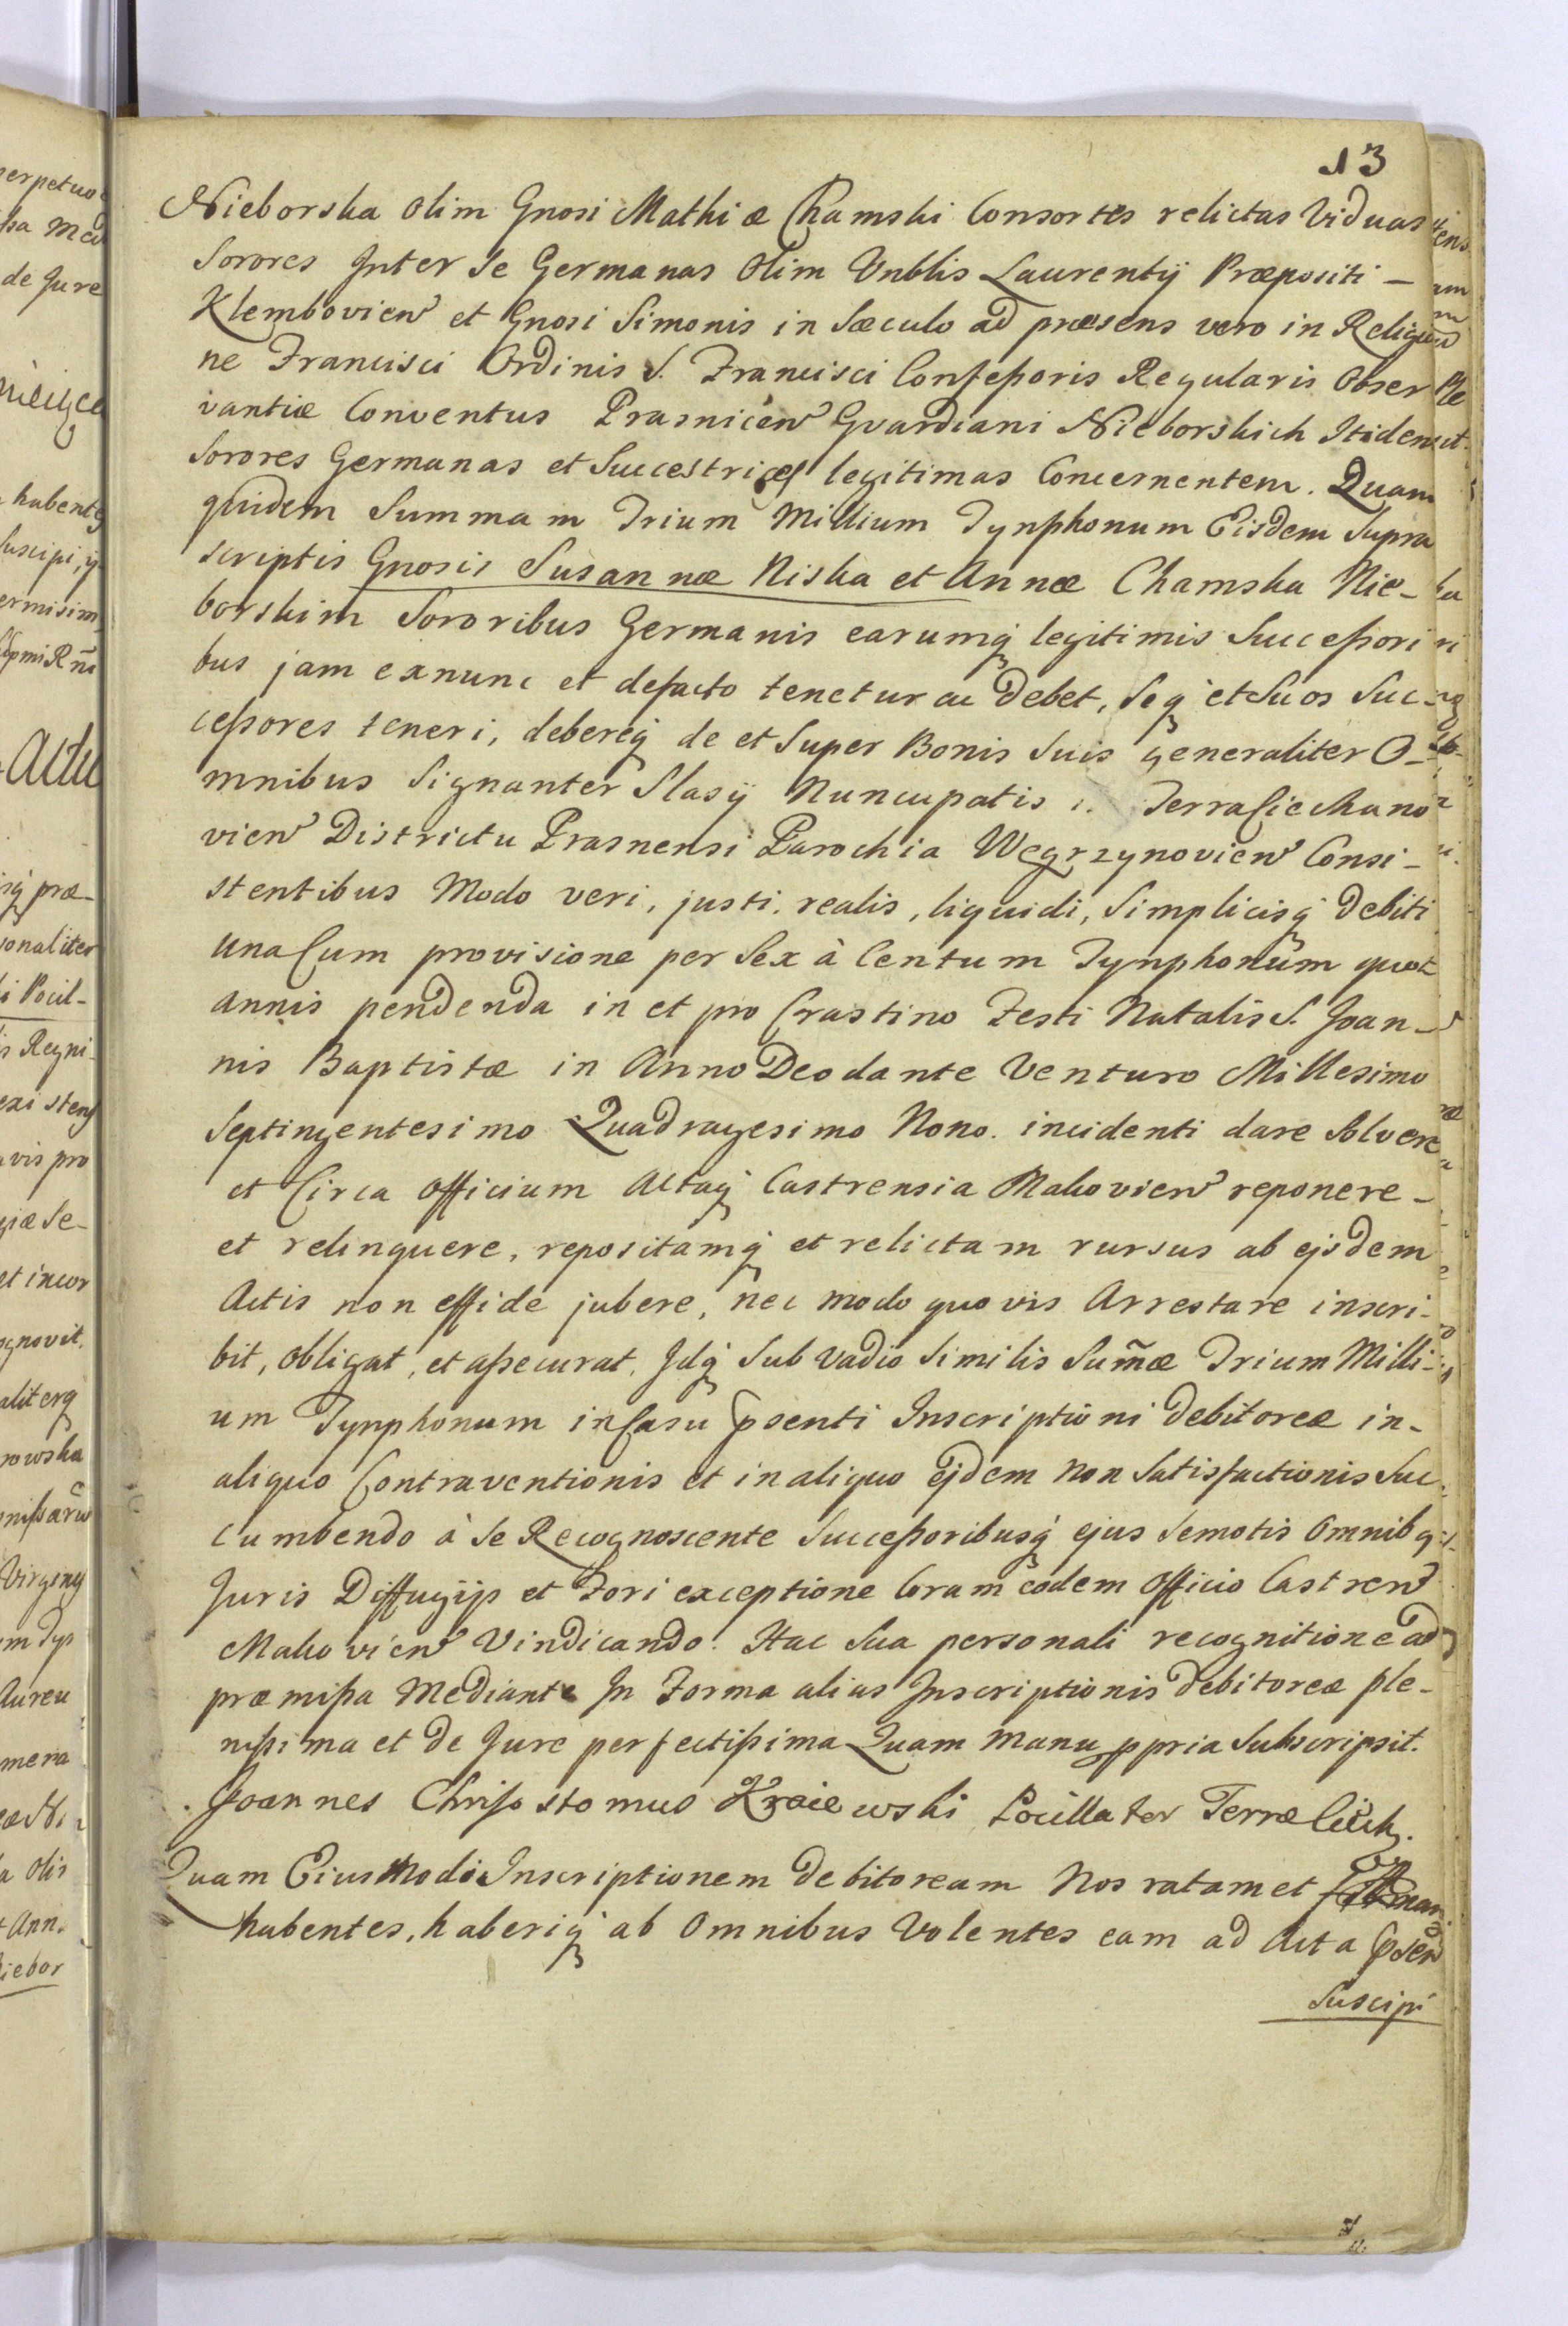 13
Nieborska olim Gnosi Mathiæ Chamski Consortes relictas Viduas
Sorores Inter Se Germanas olim Vnblis Laurentij Præpositi –
Klembovien et Gnosi Simonis in Sæculo ad præsens vero in Religio
ne Francisci Ordinis S. Francisci Confeßoris Regularis Obser
vantiæ Conventus Prasnicen Gvardiani Nieborskich Itidem
Sorores Germanas et Succestrices legitimas Concernentem. Quam
quidem Summam Trium Millium Tynphonum Eisdem Supra
scriptis Gnosis Susannæ Niska et Annæ Chamska Nie-
borskim Sororibus Germanis earumq legitimis Succeßori
bus jam exnunc et defacto tenetur ac Debet, Seq et Suos Suc-
ceßores teneri, debereq de et Super Bonis Suis generaliter O-
mnibus Signanter Slasÿ Nuncupatis i. Terra Ciechano
vien Districtu Prasnensi Parochia Wegrzynovien Consi-
stentibus Modo veri, justi, realis, liquidi, Simplicisq Debiti
una Cum provisione per Sex à Centum Tynphonum quot
annis pendenda in et pro Crastino Festi Natalis S. Joan-
nis Baptistæ in Anno Deo dante Venturo Millesimo
Septingentesimo Quadragesimo Nono incidenti dare Solvere
et Circa Officium Actaq Castrensia Makovien reponere –
et relinquere, repositamq et relictam rursus ab ejsdem
Actis non effide jubere, nec modo quovis Arrestare inscri-
bit, obligat, et aßecurat, Idq Sub Vadio Similis Sum̃æ Trium Milli-
um Tynphonum in Casu pSenti Inscriptioni Debitoreæ in-
aliquo Contraventionis et in aliquo Ejdem Non Satisfactionis Suc
cumbendo à Se Recognoscente Succeßoribusq ejus Semotis Omnibq
Juris Diffugijs et Fori exceptione Coram eodem Officio Castren
Makovien Vindicando. Hac Sua personali recognitione ad
præmißa Mediante In Forma alias Inscriptionis Debitoreæ ple-
nißima et de Jure perfectißima Quam Manu ppria Subscripsit.
Joannes Chrisostomus Kraiewski Pocillator Terræ Ciech.
Quam Eiusmodi Inscriptionem Debitoream Nos ratam et
habentes, haberiq ab Omnibus Volentes eam ad Acta pSen
Suscipi